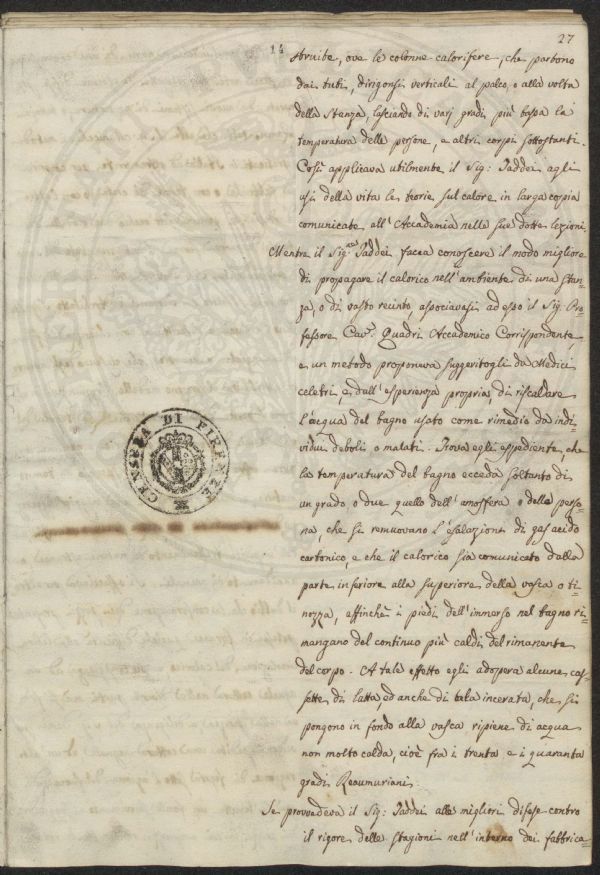 27
14
struite, ove le colonne calorifere, che partono
dai tubi, dirigonsi verticali al palco, o alla volta
della Stanza, lasciando di varj gradi più bassa la
temperatura delle persone, e altri corpi sottostanti.
Così applicava utilmente il Sig: Taddei agli
usi della vita le teorie sul calore in larga copia
comunicate all'Accademia nelle sue dotte lezioni.
Mentre il Sig.re Taddei facea conoscere il modo migliore
di propagare il calorico nell'ambiente di una stan=
za, o di vasto recinto, associavasi ad esso il Sig: Pro=
fessore Cav.e Quadri Accademico Corrispondente
e un metodo proponeva suggeritogli da Medici
celebri e dall'esperienza propria di riscaldare
l'acqua del bagno usato come rimedio da indi=
vidui deboli o malati. Trova egli espediente, che
la temperatura del bagno ecceda soltanto di
un grado o due quello dell'amosfera o della perso=
na, che si remuovano l'esalazioni di gas acido
carbonico, e che il calorico sia comunicato dalla
parte inferiore alla superiore della vasca o ti=
nozza, affinchè i piedi dell'immerso nel bagno ri=
mangano del continuo più caldi del rimanente
del corpo. A tale effetto egli adopera alcune cas=
sette di latta, ed anche di tela incerata, che si
pongono in fondo alla vasca ripiene di acqua
non molto calda, cioè fra i trenta e i quaranta
gradi Reaumuriani.
Se provvedeva il Sig: Taddei alle migliori difese contro
il rigore delle stagioni nell'interno dei fabbrica=
CENSURA DI FIRENZE